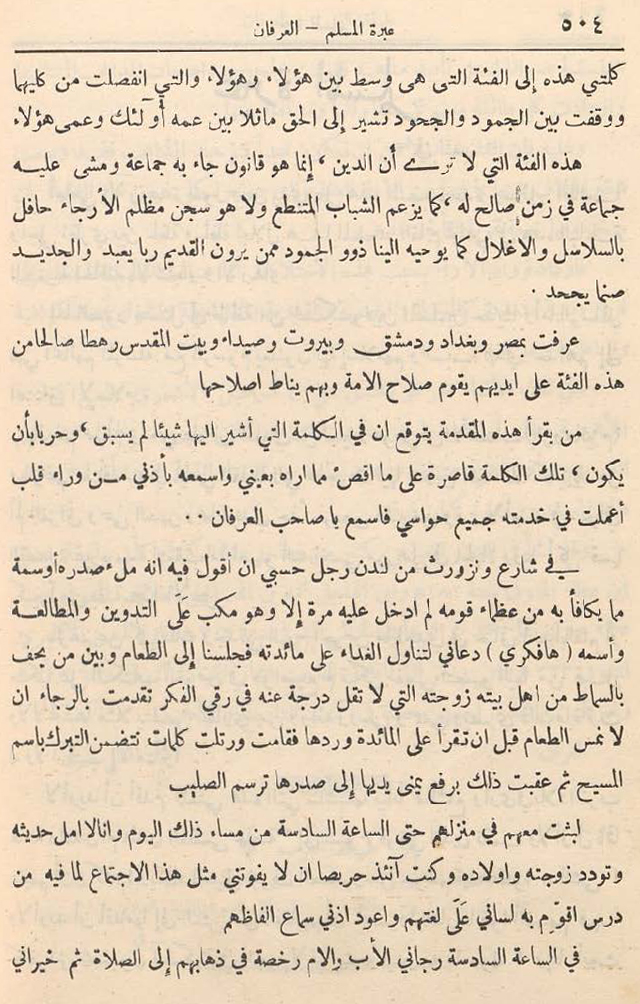 ٥٠٤
عبرة المسلم – العرفان
كلمتي هذه إلى الفئة التى هى وسط بين هؤلاء وهؤلاء والتي انفصلت من كليهما
ووقفت بين الجمود والجحود تشير إلى الحق ماثلا بين عمه أولئك وعمى هؤلاء
هذه الفئة التي لا ترے أن الدين ، إنما هو قانون جاء به جماعة ومشى عليه
جماعة في زمن صالح له ، كما يزعم الشباب المتنطع ولا هو سجن مظلم الأرجاء حافل
بالسلاسل والاغلال كما يوحيه الينا ذوو الجمود ممن يرون القديم ربا يعبد والجديد
صنما يجحد ·
عرفت بمصر وبغداد ودمشق وبيروت وصيداء وبيت المقدس رهطا صالحا من
هذه الفئة على ايديهم يقوم صلاح الامة وبهم يناط اصلاحها
من بقرأ هذه المقدمة يتوقع ان في الكلمة التي أشير اليها شيئا لم يسبق ، وحريا بأن
يكون ، تلك الكلمة قاصرة على ما اقص مما اراه بعيني واسمعه بأذني من وراء قلب
أعملت في خدمته جميع حواسي فاسمع يا صاحب العرفان ·
في شارع ونزورث من لندن رجل حسبي ان أقول فيه انه ملء صدره أوسمة
ما يكافأ به من عظماء قومه لم ادخل عليه مرة إلا وهو مكب عَلَى التدوين والمطالعة
وأسمه ( هافكري ) دعاني لتناول الغداء على مائدته فجلسنا إلى الطعام وبين من يحف
بالسماط من اهل بيته زوجته التي لا تقل درجة عنه في رقي الفكر تقدمت بالرجاء ان
لا نمس الطعام قبل ان تقرأ على المائدة وردها فقامت ورتلت كلمات تتضمن التبرك باسم
المسيح ثم عقبت ذلك برفع يمنى يديها إلى صدرها ترسم الصليب
لبثت معهم في منزلهم حتى الساعة السادسة من مساء ذلك اليوم وانا لا امل حديثه
وتودد زوجته واولاده وكنت آنئذ حريصا ان لا يفوتني مثل هذا الاجتماع لما فيه من
درس اقوّم به لساني عَلَى لغتهم واعود اذني سماع الفاظهم
في الساعة السادسة رجاني الأب والام رخصة في ذهابهم إلى الصلاة ثم خيراني